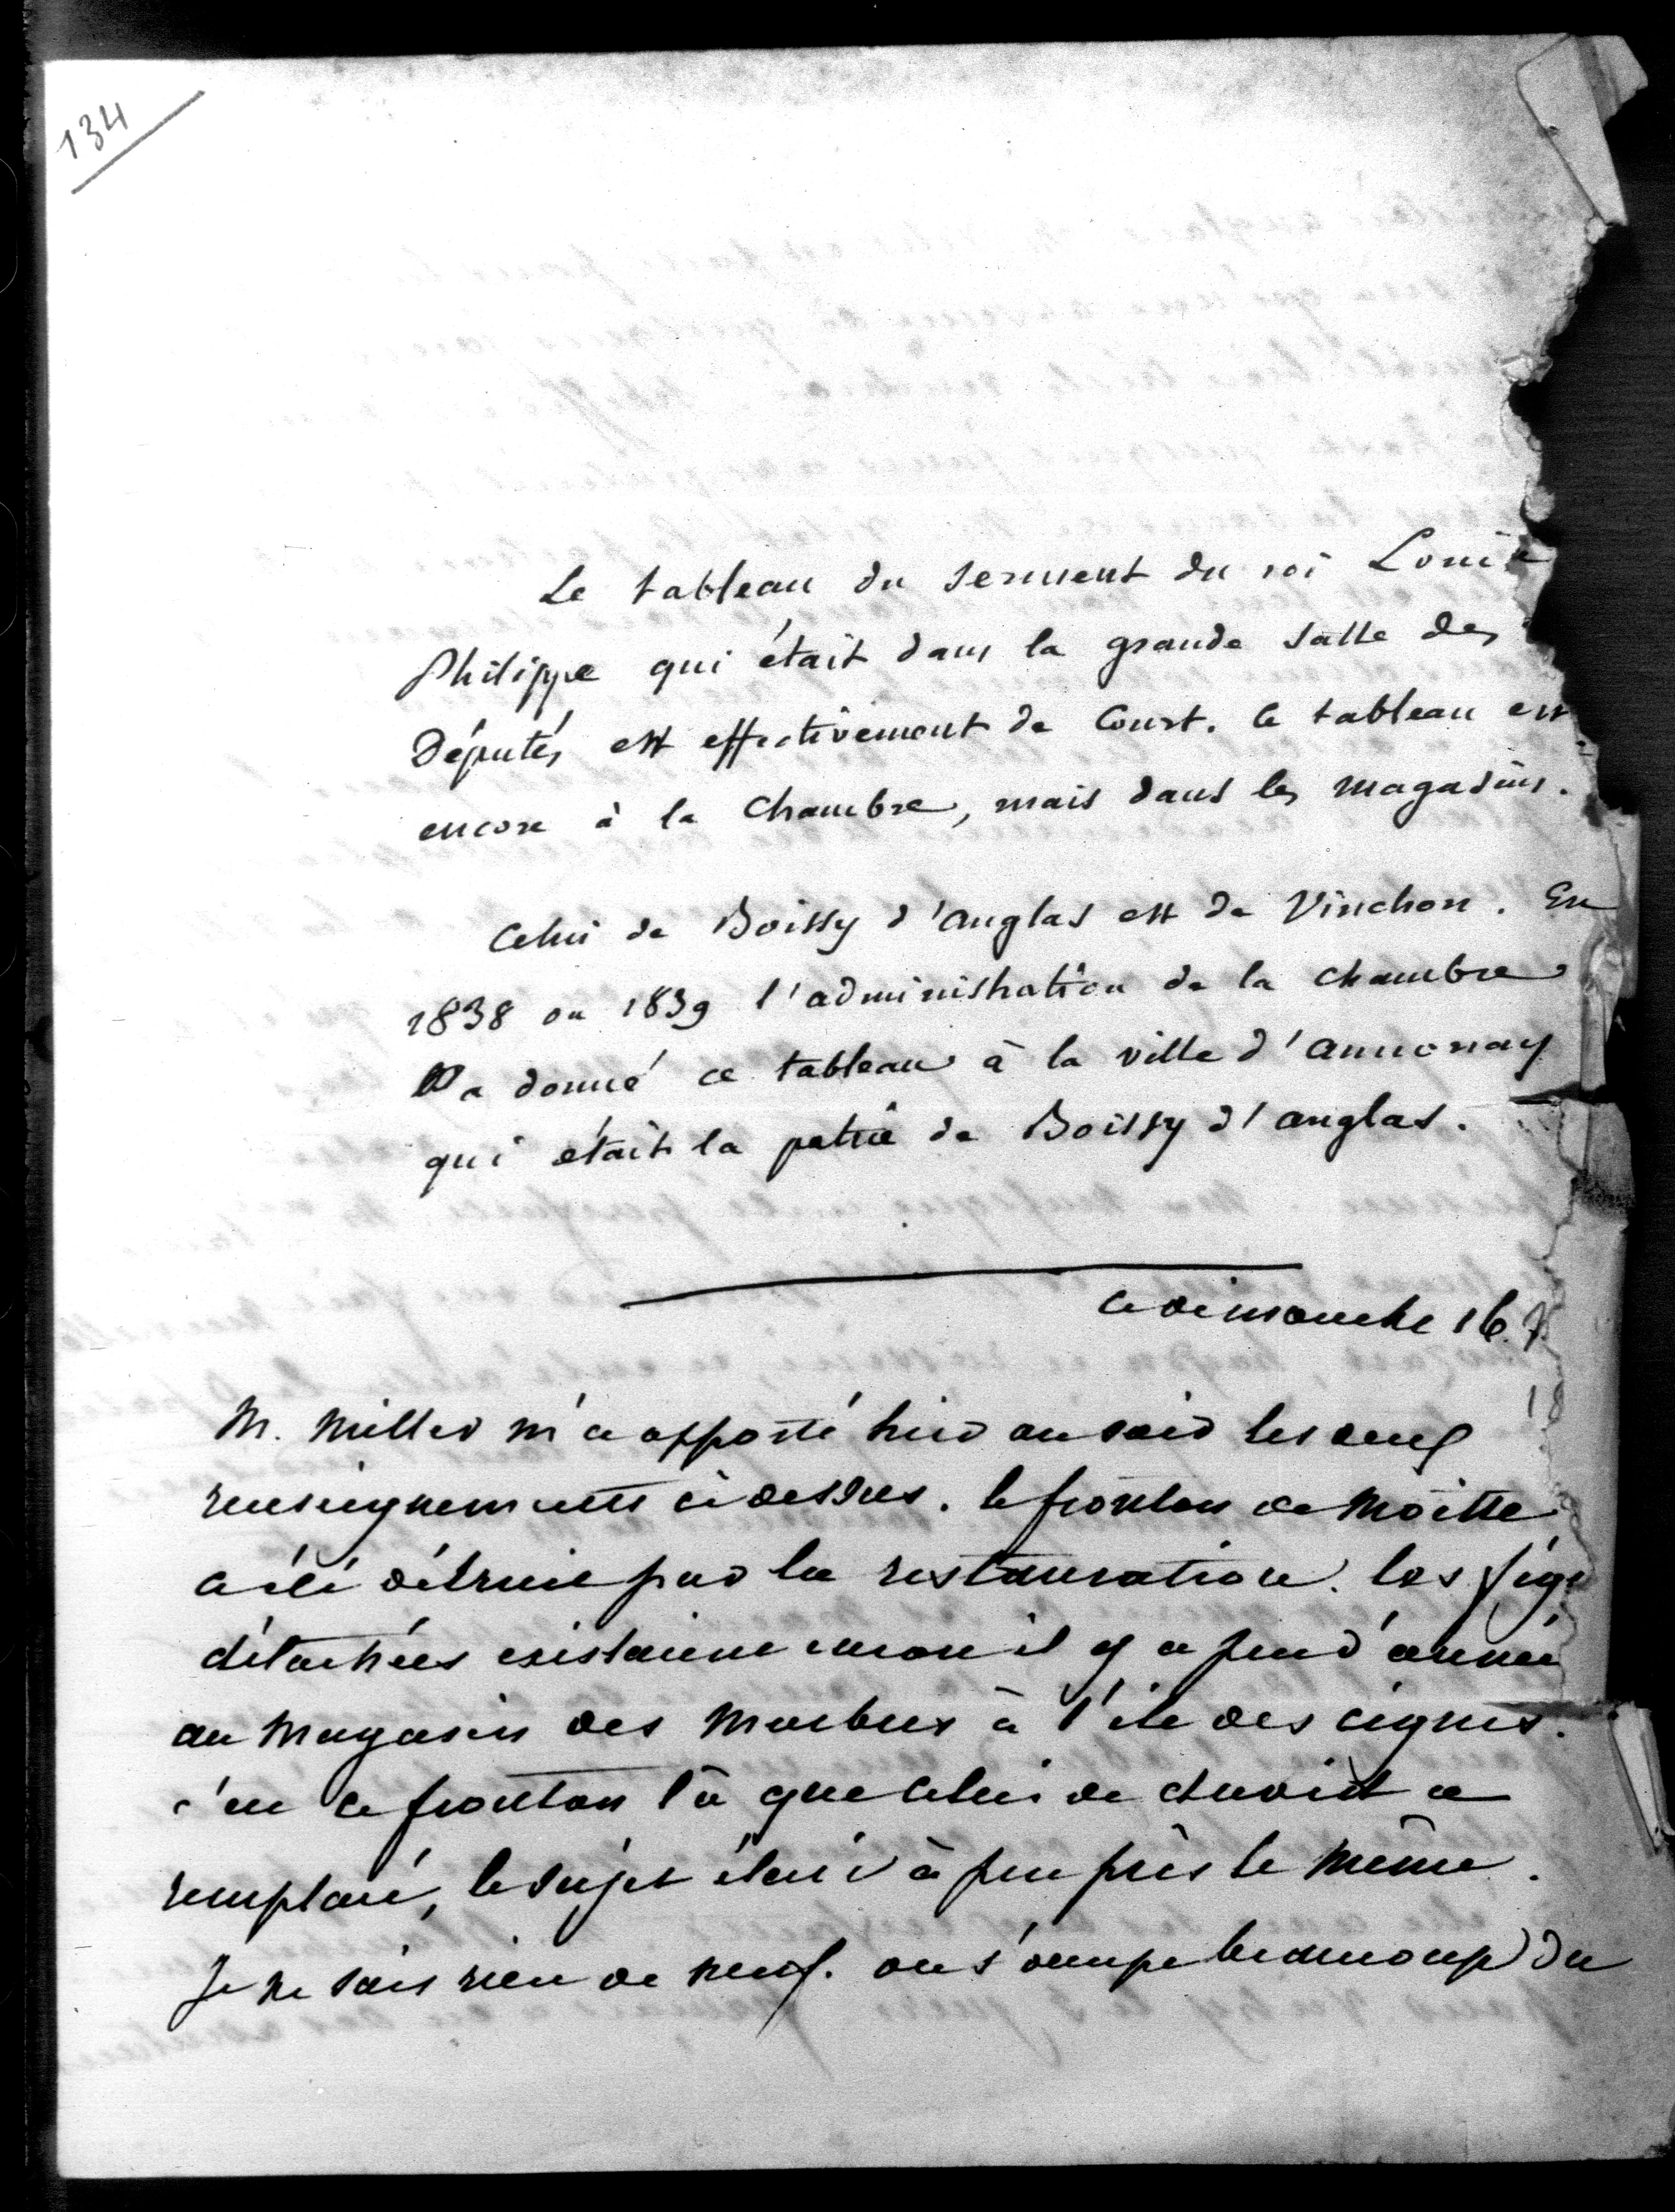 134
Le tableau du serment du roi Louis
Philippe qui était dans la grande salle des
Députés est effectivement de Court. Ce tableau est
encore à la Chambre, mais dans les magasins.
Celui de Boissy d'anglas est de Vinchon. En
1838 ou 1839 l'administration de la chambre
a donné ce tableau à la ville d'annonay
qui était la patrie de Boissy d'anglas.
ce dimanche 16
M. Miller m'a apporté hier au soir les deux
renseignements ci dessus. le fronton de Moitte
a été détruit par la restauration. les
détachées existaient encore il y a peu d'années
au Magasin des Marbres à l'ile des cignes.
c'est ce fronton là que celui de david a
remplacé, le sujet étoit à peu près le même.
Je ne sais rien de neuf. on s'occupe beaucoup du